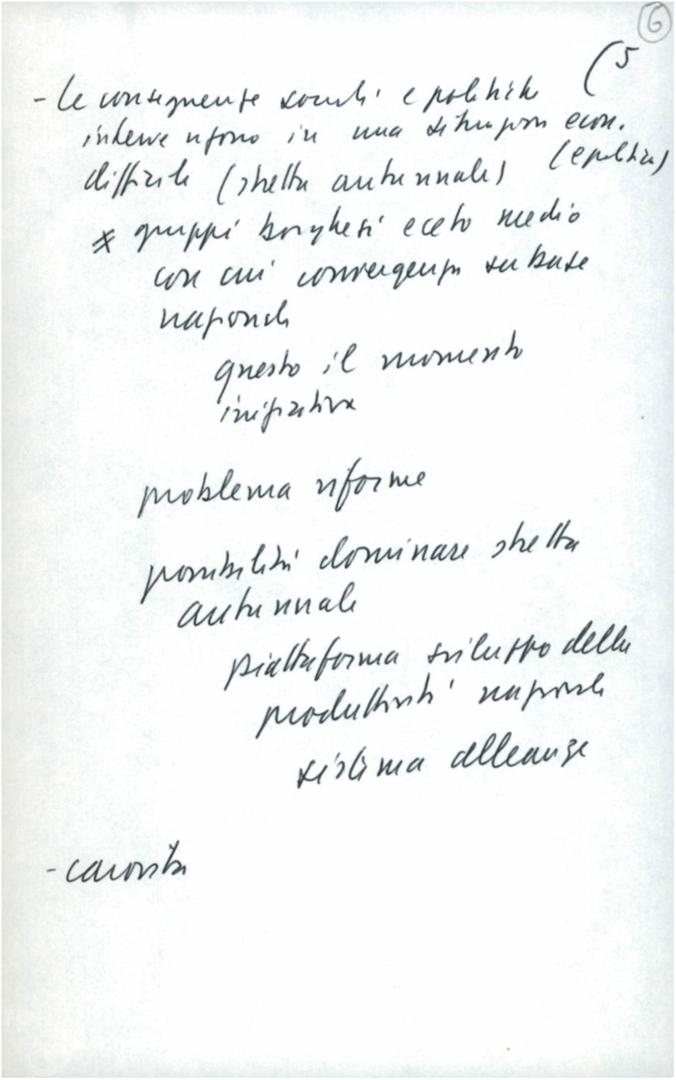 6
(5
- le conseguenze sociali e politiche
intervengono in una situazione econ.
difficile (stretta autunnale) (e politica)
* gruppi borghesi e ceto medio
con cui convergenza su base
nazionale
questo il momento
iniziativa
problema riforme
possibilità dominare stretta
autunnale
piattaforma sviluppo della
produttività nazionale
sistema alleanze
- carovita